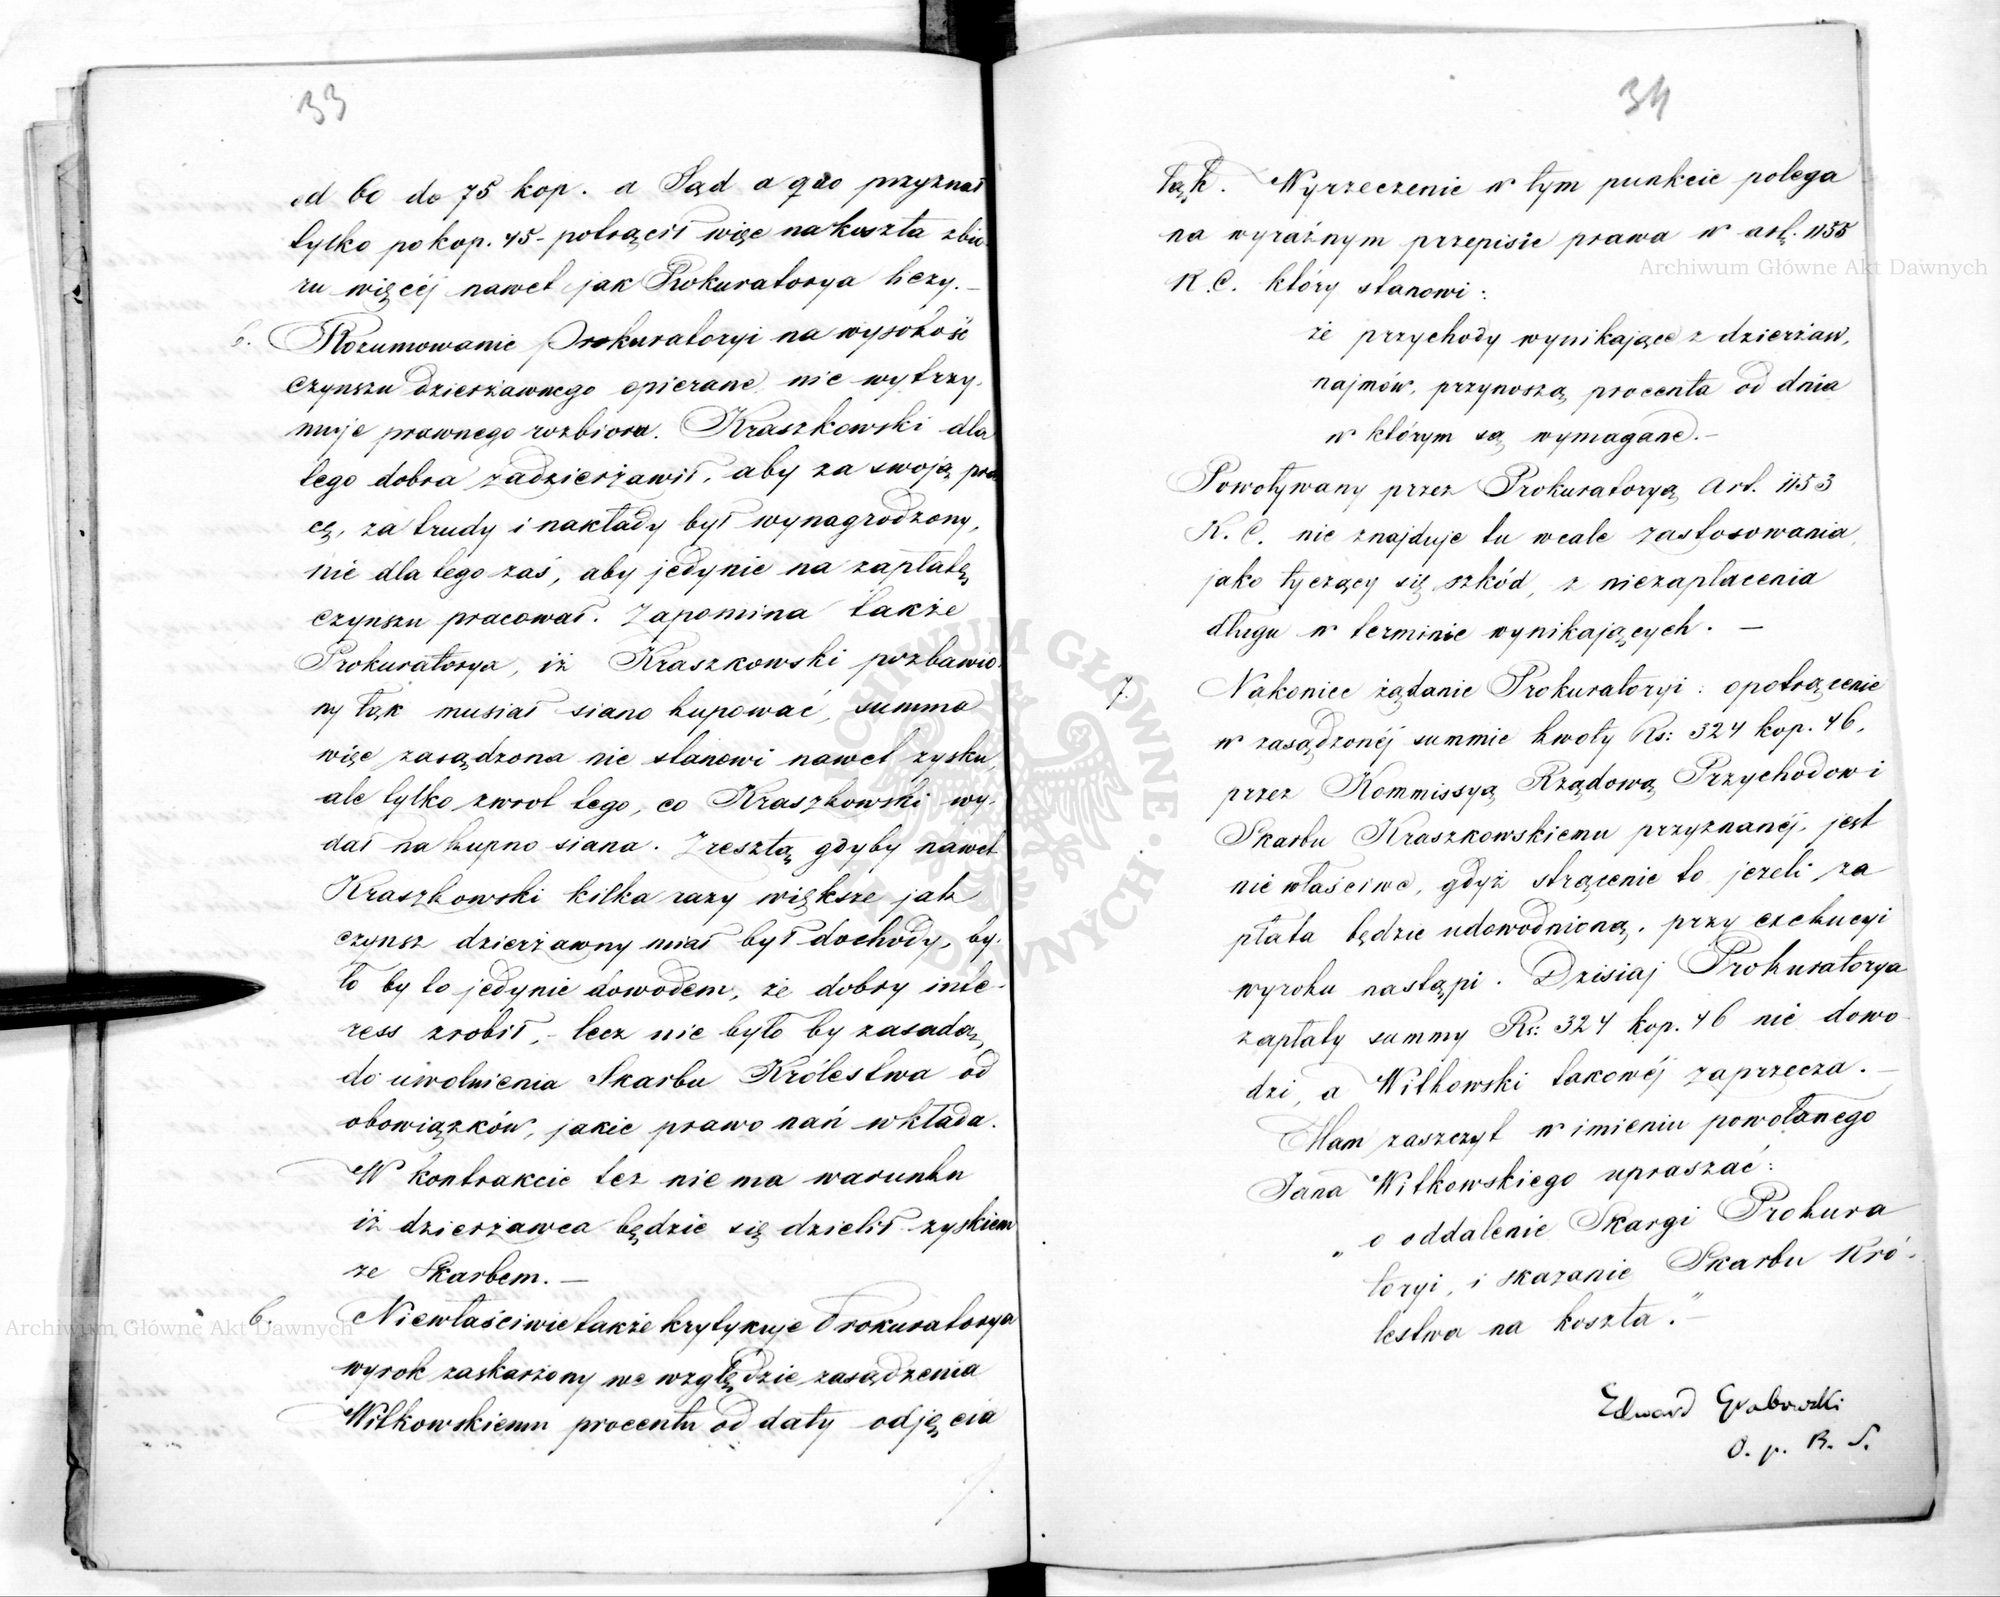 33
od 60 do 75 kop. a Sąd a quo przyznał
tylko po kop. 45 - potrącił więc na koszta zbio-
ru więcéj nawet jak Prokuratorya liczy. –
Rozumowanie Prokuratoryi na wysokość
czynszu dzierżawnego opierane, nie wytrzy-
muje prawnego rozbioru. Kraszkowski dla
tego dobra zadzierżawił, aby za swoją pra-
cę, za trudy i nakłady był wynagrodzony,
nie dla tego zaś, aby jedynie na zapłatę
czynszu pracował. Zapomina także
Prokuratorya, iż Kraszkowski pozbawio-
ny łąk musiał siano kupować, summa
więc zasądzona nie stanowi nawet zysku,
ale tylko zwrot tego, co Kraszkowski wy-
dał na kupno siana. Zresztą gdyby nawet
Kraszkowski kilka razy większe jak
czynsz dzierżawny miał był dochody, by-
ło by to jedynie dowodem, że dobry inte-
ress zrobił, - lecz nie było by zasadą,
do uwolnienia Skarbu Królestwa od
obowiązków, jakie prawo nań wkłada.
W kontrakcie też nie ma warunku
iż dzierżawca będzie się dzielił zyskiem
ze Skarbem. –
6. Niewłaściwie także krytykuje Prokuratorya
wyrok zaskarżony we względzie zasądzenia
Witkowskiemu procentu od daty odjęcia
34
łąk. Wyrzeczenie w tym punkcie polega
na wyraźnym przepisie prawa w art. 1155
K. C. który stanowi:
że przychody wynikające z dzierżaw,
najmów, przynoszą procenta od dnia
w którym są wymagane. –
Powoływany przez Prokuratoryą Art. 1153
K. C. nie znajduje tu wcale zastosowania,
jako tyczący się szkód, z niezapłacenia
długu w terminie wynikających. –
7. Nakoniec żądanie Prokuratoryi: o potrącenie
w zasądzonéj summie kwoty Rs: 324 kop. 46,
przez Kommissyą Rządową Przychodów i
Skarbu Kraszkowskiemu przyznanéj, jest
niewłaściwe, gdyż strącenie to jeżeli za
płata będzie udowodnioną, przy exekucyi
wyroku nastąpi. Dzisiaj Prokuratorya
zapłaty summy Rs: 324 kop. 46 nie dowo-
dzi, a Witkowski takowéj zaprzecza. –
Mam zaszczyt w imieniu powołanego
Jana Witkowskiego upraszać:
„o oddalenie Skargi Prokura
toryi, i skazanie Skarbu Kró-
lestwa na koszta." –
Edward Grabowski
O. p. R. S.
Archiwum Główne Akt Dawnych
Archiwum Główne Akt Dawnych
ARCHIWUM GŁÓWNE AKT DAWNYCH